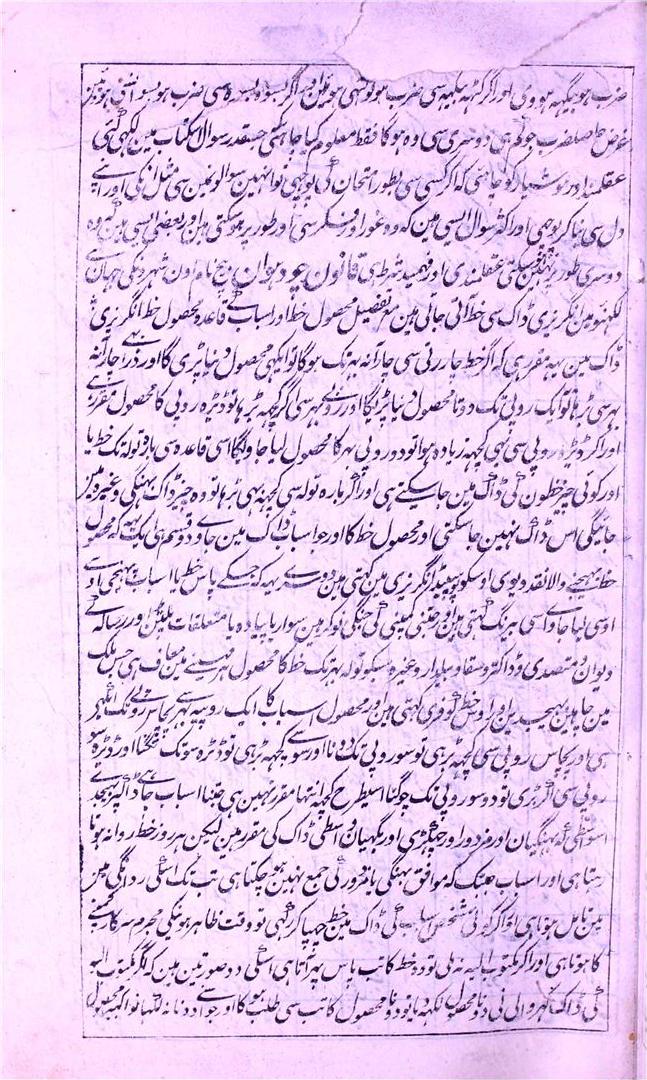 ضرب ہو بیگہہ ہووی اور اگر کٹہہ بیگہہ سی ضرب ہو تو کٹہی ہونگی اور اگر بسوہ بسوہ سی ضرب ہو بسوانسی ہونگی
غرض حاصلضرب جو کم ہی دوسری سی وہ ہوگا فقط معلوم کیا چاہئی کہ جسقدر سوال اس کتاب مین لکہی گئی
عقلمند اور ہوشیار کو چاہئی کہ اگر کسی سی بطور امتحان کی پوچہی تو انہین سوالونمین سی مثال کی اور اپنی
دل سی بنا کر پوچہی اور اکثر سوال ایسی مین کہ وہ غور اور فکر سی اور طور پر ہو سکتی ہین اور بعضی ایسی ہین کہ وہ
دوسری طور پر نہین ہو سکتی عقلمندی اور فہمید شرط ہی قانون چودہوان بیچ نام اون شہرونکی جہان سے
لکہنؤ مین انگریزی ڈاک سی خط آتی جاتی ہین مع تفصیل محصول خط اور اسباب کے قاعدہ محصول خط انگریزی
ڈاک مین یہہ مقرر ہی کہ اگر خط چار رتی سی چار آنہ بہر تک ہوگا تو ایکہی محصول دینا پڑی گا اور ذرا چار آنہ
بہر سی بڑہا تو ایک روپی تک دونا محصول دینا پڑیگا اور روپی بہر سی اگر کچہہ بڑہا تو ڈیڑہ روپی کا محصول مقرر ہے
اور اگر ڈیڑہ روپی سی بہی کچہہ زیادہ ہوا تو دو روپی بہر کا محصول لیا جاویگا اسی قاعدہ سی بارہ تولہ تک خط یا
اور کوئی چیز خطون کی ڈاک مین جا سکتی ہی اور اگر بارہ تولہ سی کچہہ بہی بڑہا تو وہ چیز ڈاک بہنگی وغیرہ مین
جائیگی اس ڈاک مین نہین جا سکتی اور محصول خط کا اور جو اسباب ڈاک مین جاوے دو قسم ہی ایک یہہ کہ محصول
خط بہیجنی والا نقد دیوی اوسکو پیڈ انگریزی مین کہتی ہین دوسرے یہہ کہ جسکے پاس خط یا اسباب پہنچی اوسے
اوسی لیا جاوے اسی بیرنگ کہتی ہین اور جتنی کمپنی کی جنگی نوکر ہین سوار یا پیادہ یا متعلقات پلٹن اور رسالہ کے
دیوان و متصدی و ڈاکتر و سقا و بیلدار وغیرہ سبکو تولہ بہر تک خط کا محصول ہر مہینے مین معاف ہی جس ملک
مین چاہین بہیجدین اور اوس خط کو فری کہتی ہین اور محصول اسباب کا ایک روپیہ بہر سے پچاس روپی تک اکہرا
ہی اور پچاس روپی سی کچہہ بڑہی تو سو روپی تک دونا اور سو سی کچہہ بڑہی تو ڈیڑہ سو تک تگنا اور ڈیڑہ سو
روپی سی اگر بڑی تو دو سو روپی تک چوگنا اسیطرح کچہہ انتہا مقرر نہین ہی جتنا اسباب چاہے ڈاک پر بہیجدے
اسواسطی کہ بہنگیان اور مزدور اور چہکڑی اور بگہیان واسطی ڈاک کی مقرر ہین لیکن ہر روز خط روانہ ہوتا
رہتا ہی اور اسباب جبتک کہ موافق بہنگی یا مزدور کی جمع نہین ہو چکتا ہی تب تک اسکی روانگی مین
تامل ہوتا ہی اور اگر کوئی شخص اسباب کی ڈاک مین خط چہپا کر رکہی تو وقت ظاہر ہونیکی مجرم سرکار کمپنی
کا ہوتا ہی اور اگر مکتوب الیہ نہ ملی تو وہ خط کاتب پاس پہر آتا ہی اسکی دو صورتین ہین کہ اگر مکتوب الیہ
کی ڈاک گہر والی نی دونا محصول لکہہ دیا تو دونا محصول کاتب سی طلب ہوگا اور جو اوسنے دونا نہ لکہا تو اکہرا محصول